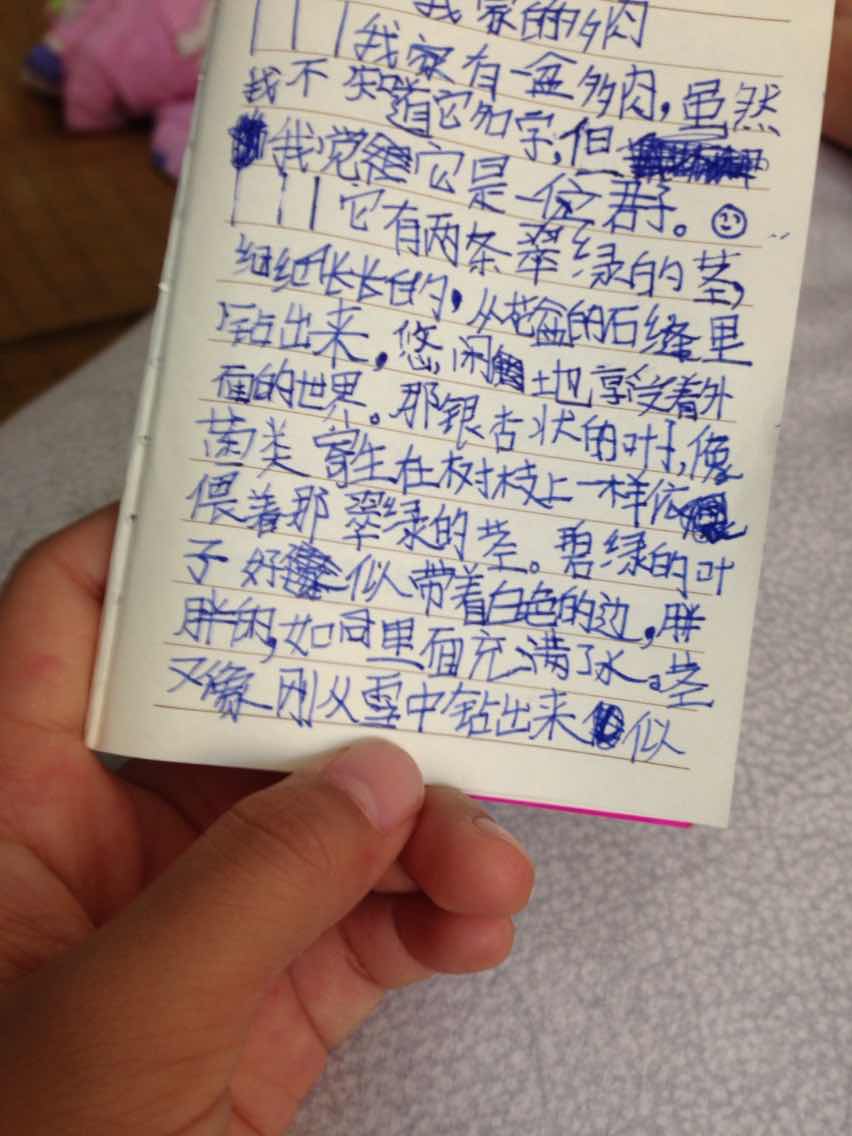 我家的多肉
我家有一盆多肉,虽然
我不知道它名字,但
我觉得它是一位君子。
它有两条翠绿的茎,
细细长长的,从花盆的石缝里
钻出来,悠闲地享受着外
面的世界。那银杏状的叶子,像
菌类寄生在树枝上一样依
偎着那翠绿的茎。碧绿的叶
子好似带着白色的边,胖
胖的,如同里面充满了水。茎
又像刚从雪中钻出来似